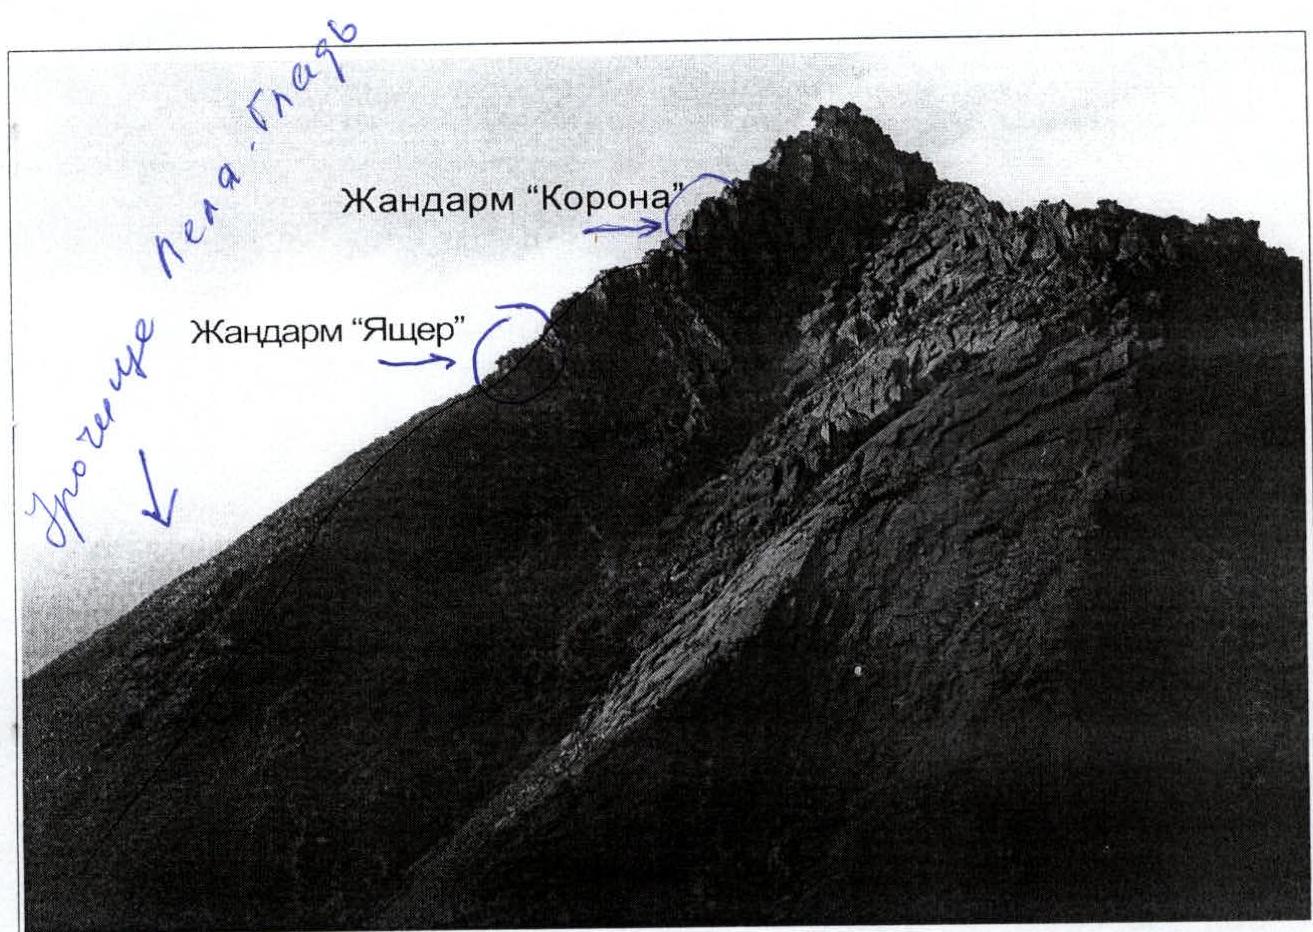 Урочище Пела-Гладь
Жандарм “Корона”
Жандарм “Ящер”